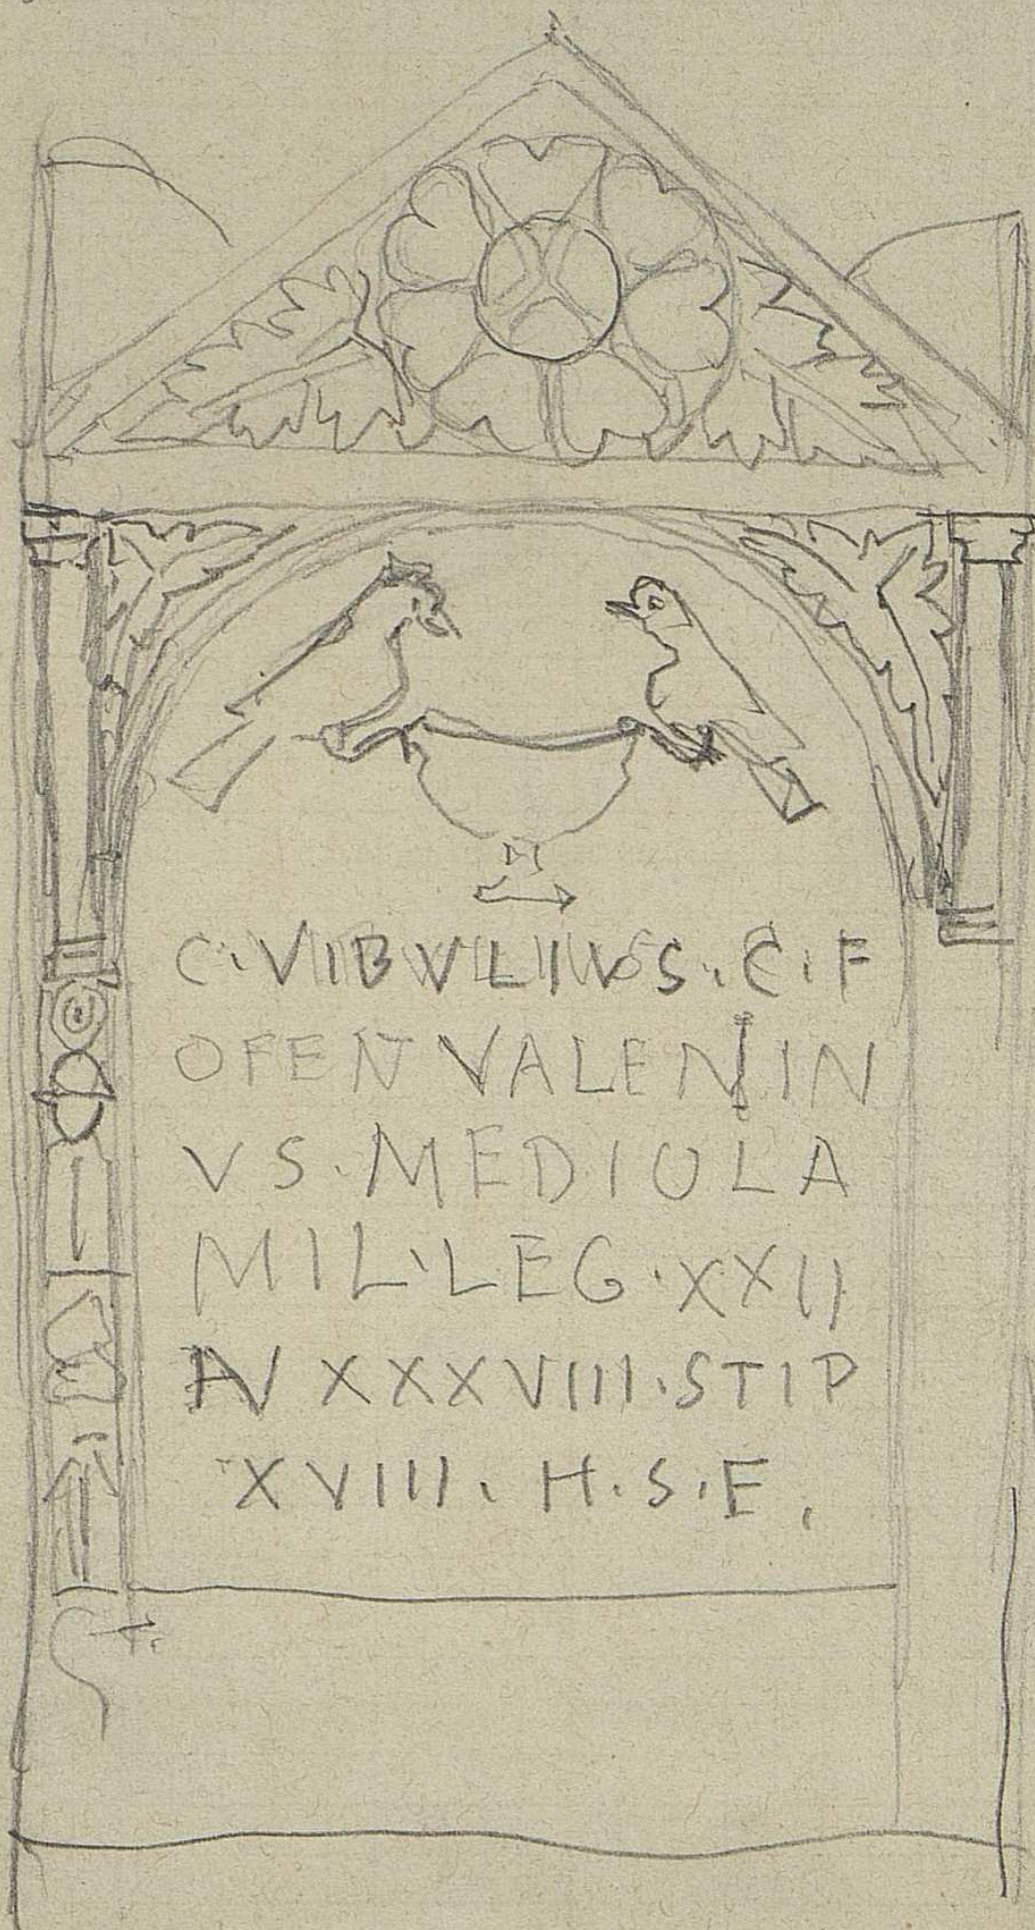 C. VIBVLIVS. C. F
OFEN VALENTIN
VS. MEDIOLA
MIL. LEG. XXII
AN XXXVIII. STIP
XVIII. H. S. E.